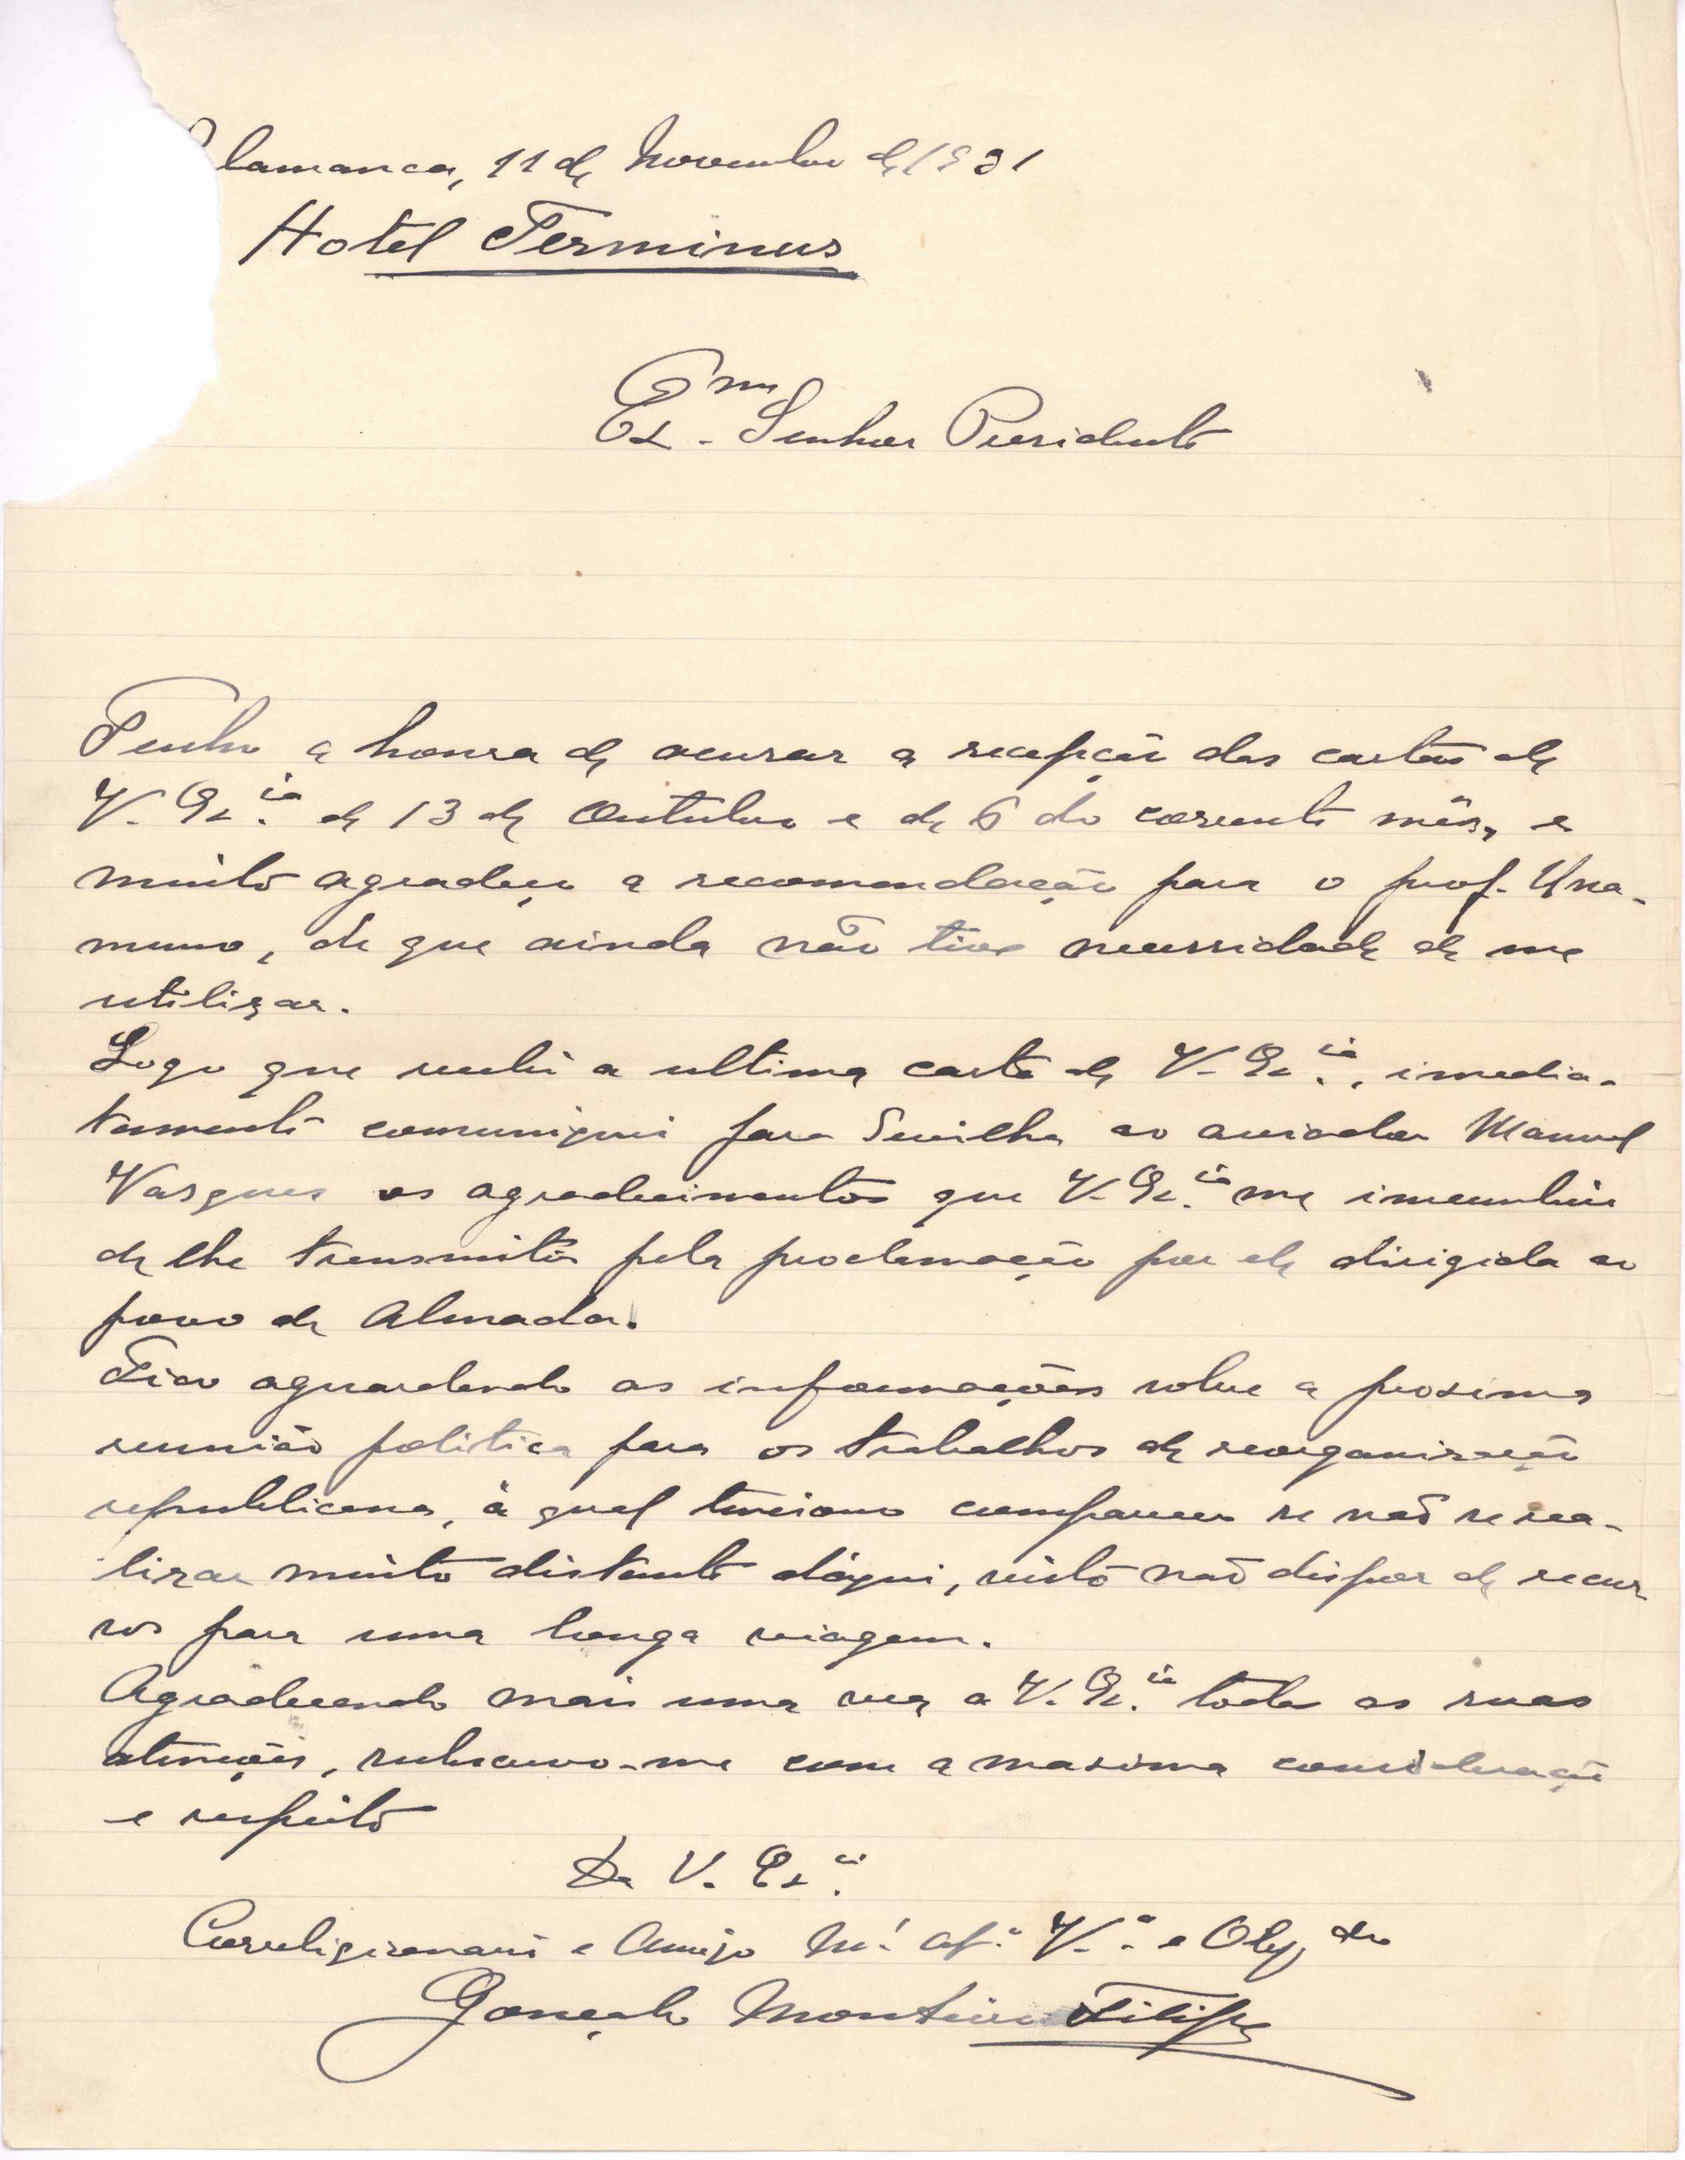 lamanca, 11 de Novembro de 1931
Hotel Terminus
Exmo Senhor Presidente
Tenho a honra de acusar a recepção das cartas de
V. Ex.cia de 13 de Outubro e de 6 do corrente mês, e
muito agradeço a recomendação para o prof. Una-
muno, de que ainda não tive necessidade de me
utilizar.
Logo que recebi a ultima carta de V. Ex.cia, imedia-
tamente comuniquei para Sevilha ao aviador Manuel
Vasques os agradecimentos que V. Ex.cia me incumbiu
de lhe transmitir pela proclamação por ele dirigida ao
povo de Almada.
Fico aguardando as informações sobre a proxima
reunião politica para os trabalhos de reorganização
republicana, à qual tenciono comparecer se não se rea-
lizar muito distante dáqui, visto não dispor de recur-
sos para uma longa viagem.
Agradecendo mais uma vez a V. Ex.cia todas as suas
atenções, subscrevo-me com a maxima consideração
e respeito
De V. Ex.cia
Correligionario e Amigo Mt.o At.o V.or e Obg.do
Gonçalo Monteiro Filipe